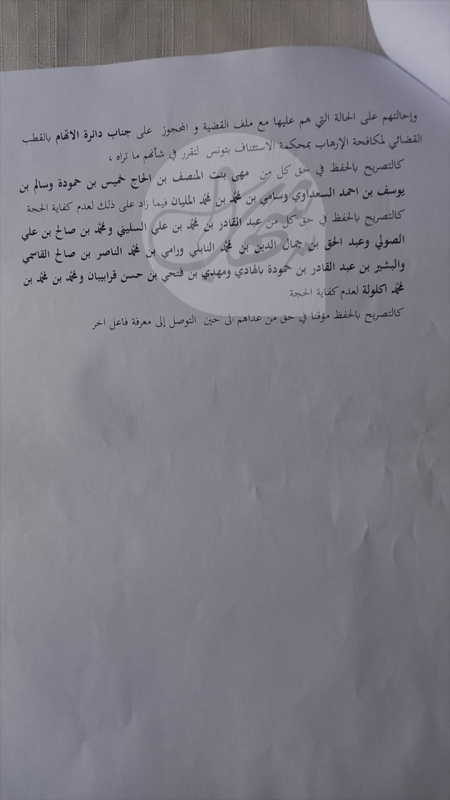 وإحالتهم على الحالة التي هم عليها مع ملف القضية و المحجوز على جناب دائرة الاتهام بالقطب
القضائي لمكافحة الإرهاب بمحكمة الاستئناف بتونس لتقرر في شأنهم ما تراه ،
كالتصريح بالحفظ في حق كل من مهى بنت المنصف بن الحاج خميس بن حمودة وسالم بن
يوسف بن احمد السعداوي وسامي بن محمد بن محمد المليان فيما زاد على ذلك لعدم كفاية الحجة
كالتصريح بالحفظ في حق كل من عبد القادر بن محمد بن علي السليني ومحمد بن صالح بن علي
الصولي وعبد الحق بن جمال الدين بن محمد النابلي ورامي بن محمد الناصر بن صالح القاسمي
والبشير بن عبد القادر بن حمودة بالهادي ومهدي بن فتحي بن حسن قراييبان ومحمد بن محمد بن
محمد اكلولة لعدم كفاية الحجة
كالتصريح بالحفظ مؤقتا في حق من عداهم الى حين التوصل إلى معرفة فاعل اخر